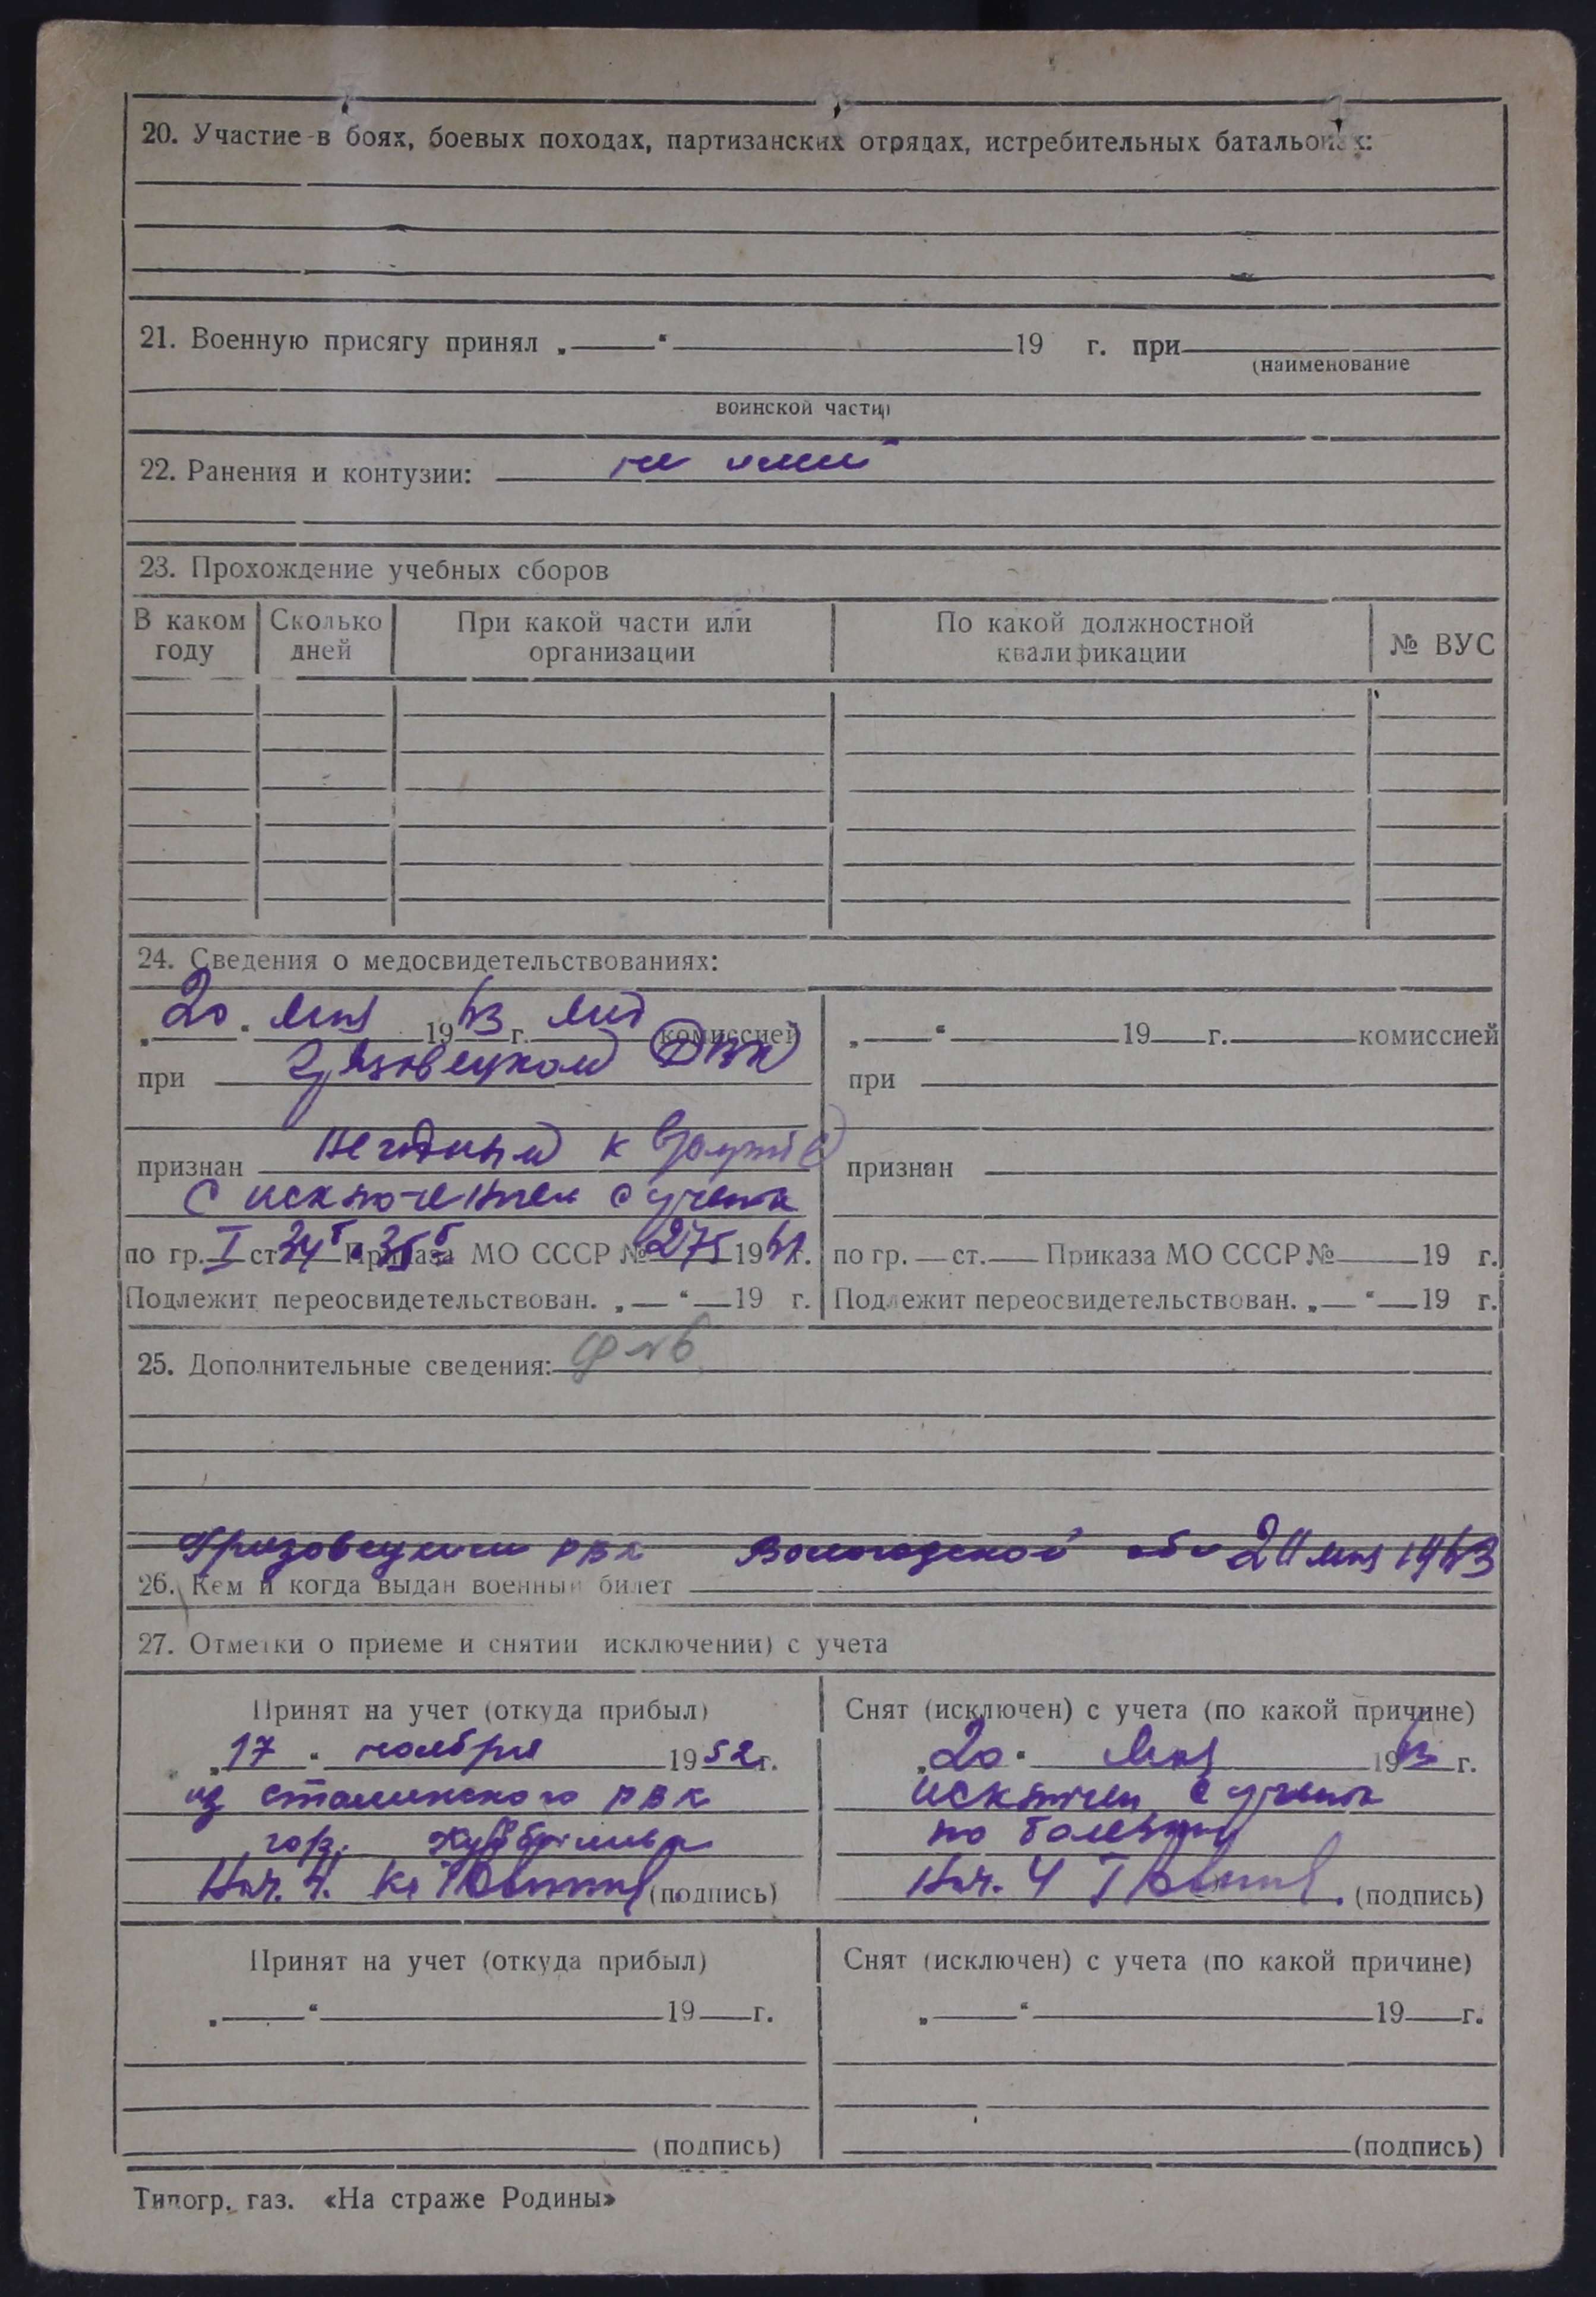 20. Участие в боях, боевых походах, партизанских отрядах, истребительных батальонах:
21. Военную присягу принял „ “ 19 г. при
(наименование
воинской части)
22. Ранения и контузии: не имеет
23. Прохождение учебных сборов
В каком году
Сколько дней
При какой части или организации
По какой должностной квалификации
№ ВУС
24. Сведения о медосвидетельствованиях:
„20“ мая 1963 г. мед комиссией
при Грязовецком РВК
признан негодный к
с исключением с учета
по гр. I ст. 34б 35б Приказа МО СССР № 275 1961 г.
Подлежит переосвидетельствован. „ “ 19 г.
„ “ 19 г. комиссией
при
признан
по гр. ст. Приказа МО СССР № 19 г.
Подлежит переосвидетельствован. „ “ 19 г.
25. Дополнительные сведения:
Грязовецким РВК Вологодской обл 20 мая 1963
26. Кем и когда выдан военный билет
27. Отметки о приеме и снятии исключении) с учета
Принят на учет (откуда прибыл)
„17“ ноября 1952 г.
из Сталинского РВК
гор. Куйбышева
Нач. 4 (подпись)
Снят (исключен) с учета (по какой причине)
„20“ мая 1963 г.
исключен с учета
по болезни
Нач. 4 (подпись)
Принят на учет (откуда прибыл)
„ “ 19 г.
(подпись)
Снят (исключен) с учета (по какой причине)
„ “ 19 г.
(подпись)
Типогр. газ. «На страже Родины»